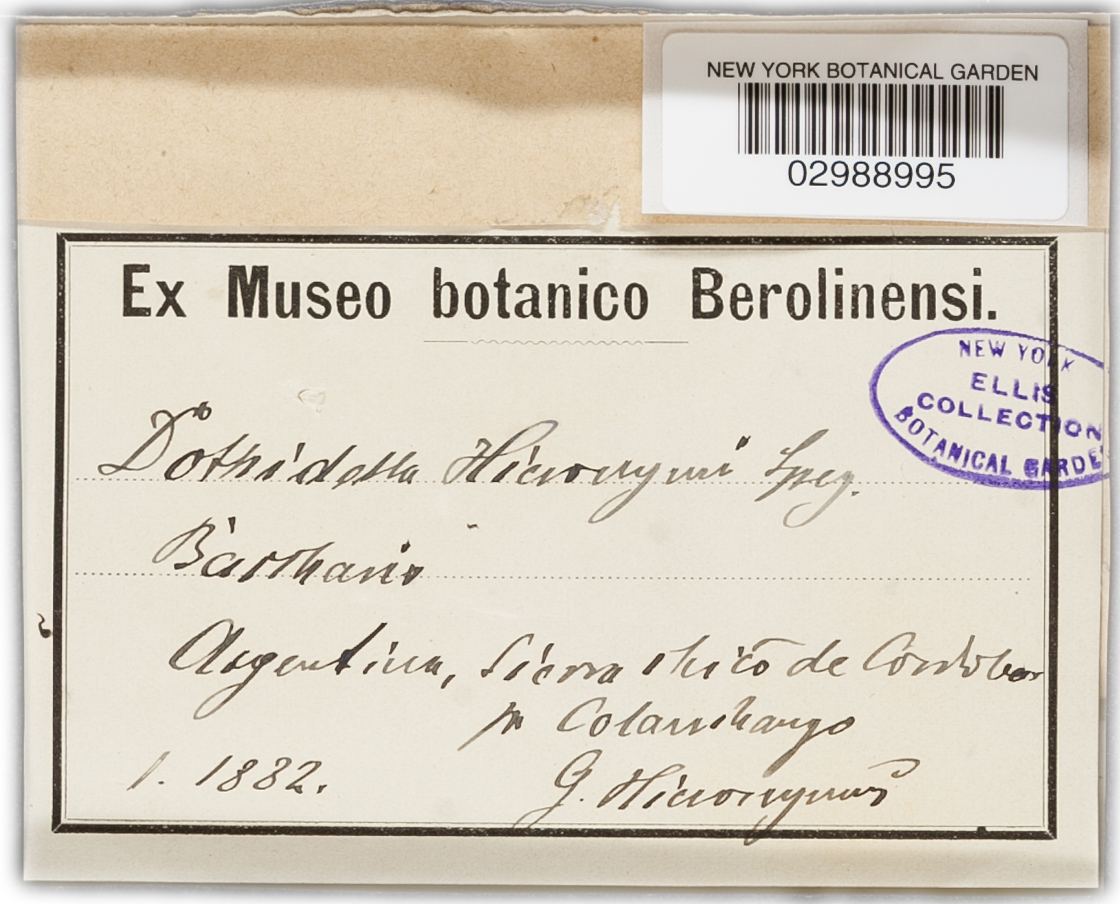 NEW YORK BOTANICAL GARDEN
02988995
Ex Museo botanico Berolinensi.
NEW YORK
ELLIS
COLLECTION
BOTANICAL GARDE
Dothidella Hieronymi Speg.
Argentina, Sierra chico de Cordoba
pr Colanchango
1. 1882.
G. Hieronymus